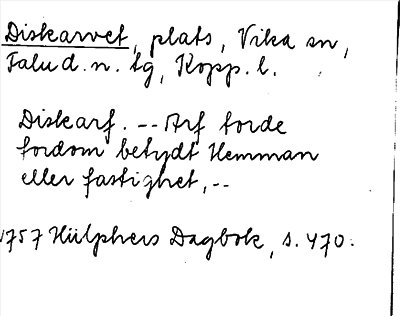 Diskarvet, plats, Vika sn,
Falu d. n. tg, Kopp. l.
Diskarf. -- Arf torde
fordom betydt Hemman
eller fastighet, --
1757 Hülphers Dagbok, s. 470.